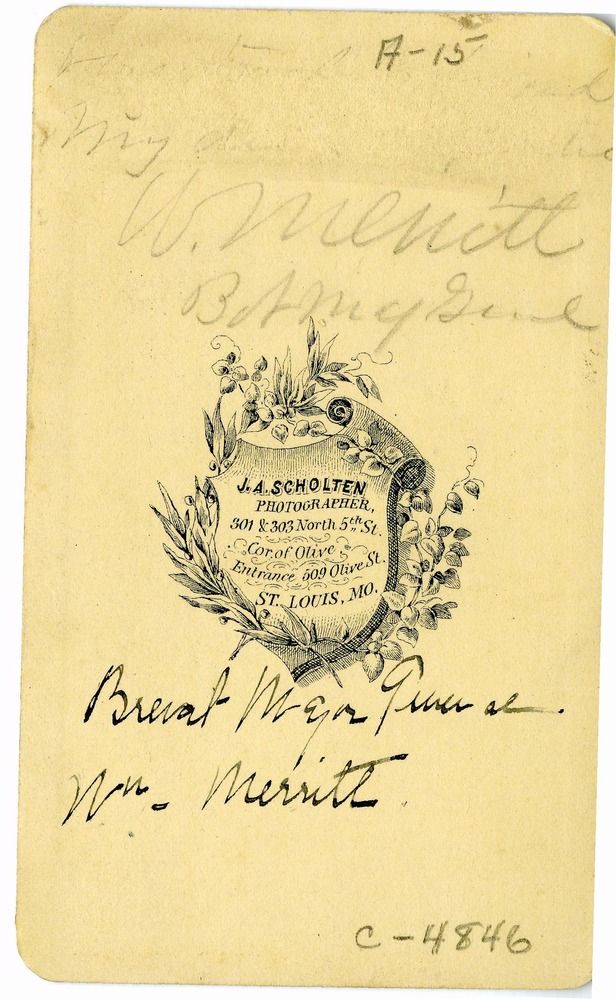 A-15
My
W. Merritt
Bvt Maj Genl
J. A. SCHOLTEN
PHOTOGRAPHER,
301 & 303 North 5th St.
Cor. of Olive
Entrance 509 Olive St.
ST. LOUIS, MO.
Brevet Major General.
Wm. Merritt.
C-4846